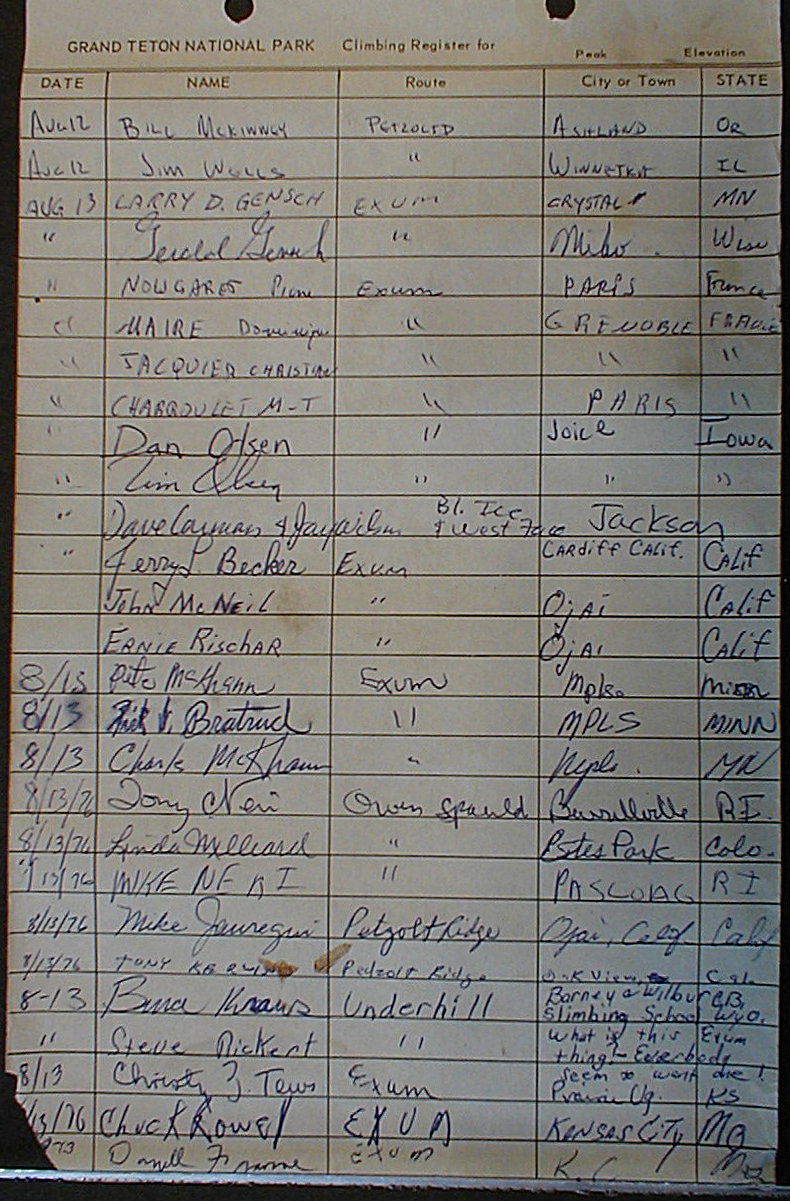 GRAND TETON NATIONAL PARK Climbing Register for Peak Elevation
DATE NAME Route City or Town STATE
Aug 12 BILL McKINNEY PETZOLTD ASHLAND OR
Aug 12 Jim Wells " WINNETKA IL
AUG 13 LARRY D. GENSCH EXUM CRYSTAL MN
" Gensch " Milw. Wisc
" NOUGARET Pierre Exum PARIS France
" MAIRE Dominique " GRENOBLE FRANCE
" JACQUIER CHRISTIAN " " "
" M-T " PARIS "
" Dan Olsen " Joice Iowa
" Tim Olsen " " "
" Dave Carman & Jay Wilson Bl. Ice & West Face Jackson
" Jerry L. Becker Exum Cardiff Calif. Calif
John McNeil " Ojai Calif
ERNIE RISCHAR " Ojai Calif
8/13 Pete McKhann Exum Mpls. Minn
8/13 Bratrud " MPLS MINN
8/13 Charles McKhann " Mpls. MN
8/13/76 Tony Neri Owen Spauld Burrillville R.I.
8/13/76 Linda Williard " Estes Park Colo.
8/13/76 MIKE NERI " PASCOAG RI
8/13/76 Mike Jauregui Petzolt Ridge Ojai, Calif. Calif
8/13/76 TONY Petzolt Ridge Oak View Cal.
8-13 Kraus Underhill Barney & Wilbur C.B.
Slimbing School Wyo.
" Steve Rickert " What is this Exum
thing?- Everbody
seem to want one!
8/13 Christy Z. Tews Exum Prairie Vlg. KS
8/13/76 Chuck Rowel EXUM KANSAS CITY MO
Exum K.C.